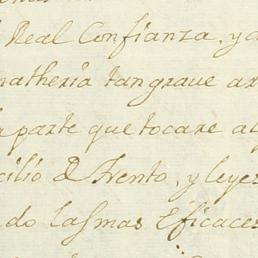 Real Confianza, y a
matheria tan grave
parte que tocare al
cilio de Trento, y leyes
do las mas eficaces